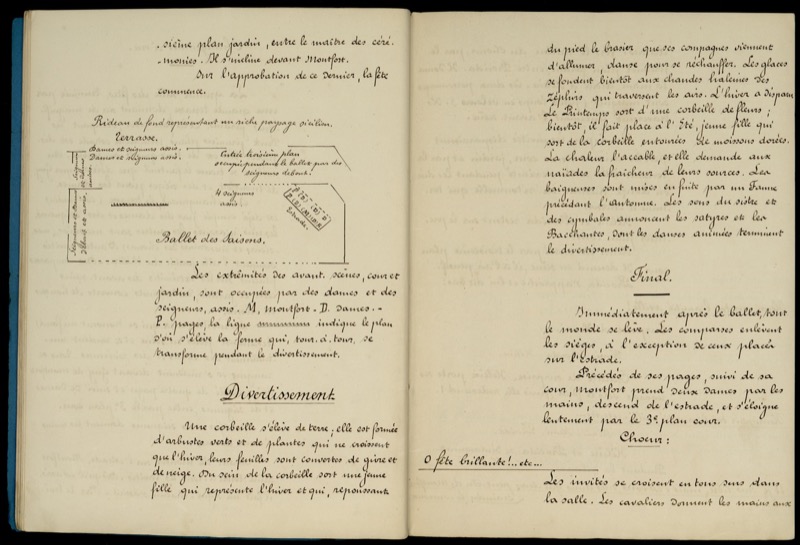 . sième plan jardin, entre le maître des céré-
. monies. Il s'incline devant Montfort.
Sur l'approbation de ce dernier, la fête
commence.
Rideau de fond représentant un riche paysage sicilien.
Terrasse.
Dames et seigneurs assis.
Dames et seigneurs assis.
Entrée troisième plan
occupée pendant le ballet par des
seigneurs debout.
4 seigneurs
assis
Estrade.
Ballet des Saisons.
Les extrémités des avant. scènes, cour et
jardin, sont occupées par des dames et des
seigneurs, assis. M, Montfort. D. Dames. -
P. pages, la ligne indique le plan
d'où s'élève la ferme qui, tour. à. tour, se
transforme pendant le divertissement.
Divertissement
Une corbeille s'élève de terre; elle est formée
d'arbustes verts et de plantes qui ne croissent
que l'hiver, leurs feuilles sont couvertes de givre et
de neige. Du sein de la corbeille sort une jeune
fille qui représente l'hiver et qui, repoussant
du pied le brasier que ses compagnes viennent
d'allumer, danse pour se réchauffer. Les glaces
se fondent bientôt aux chaudes haleines des
zéphirs qui traversent les airs. L'hiver a disparu
Le Printemps sort d'une corbeille de fleurs;
bientôt, il fait place à l'Eté, jeune fille qui
sort de la corbeille entourées de moissons dorées.
La chaleur l'accable, et elle demande aux
naïades la fraîcheur de leurs sources. Les
baigneuses sont mises en fuite par un Faune
précédant l'automne. Les sons du sistre et
des cymbales annoncent les satyres et les
Bacchantes, dont les danses animées terminent
le divertissement.
Final.
Immédiatement après le ballet, tout
le monde se lève. Les comparses enlèvent
les sièges, à l'exception de ceux placés
sur l'estrade.
Précédés de ses pages, suivi de sa
cour, Montfort prend deux dames par les
mains, descend de l'estrade, et s'éloigne
lentement par le 3e plan cour.
Choeur:
O fête brillante!.. etc...
Les invités se croisent en tous sens dans
la salle. Les cavaliers donnent les mains aux